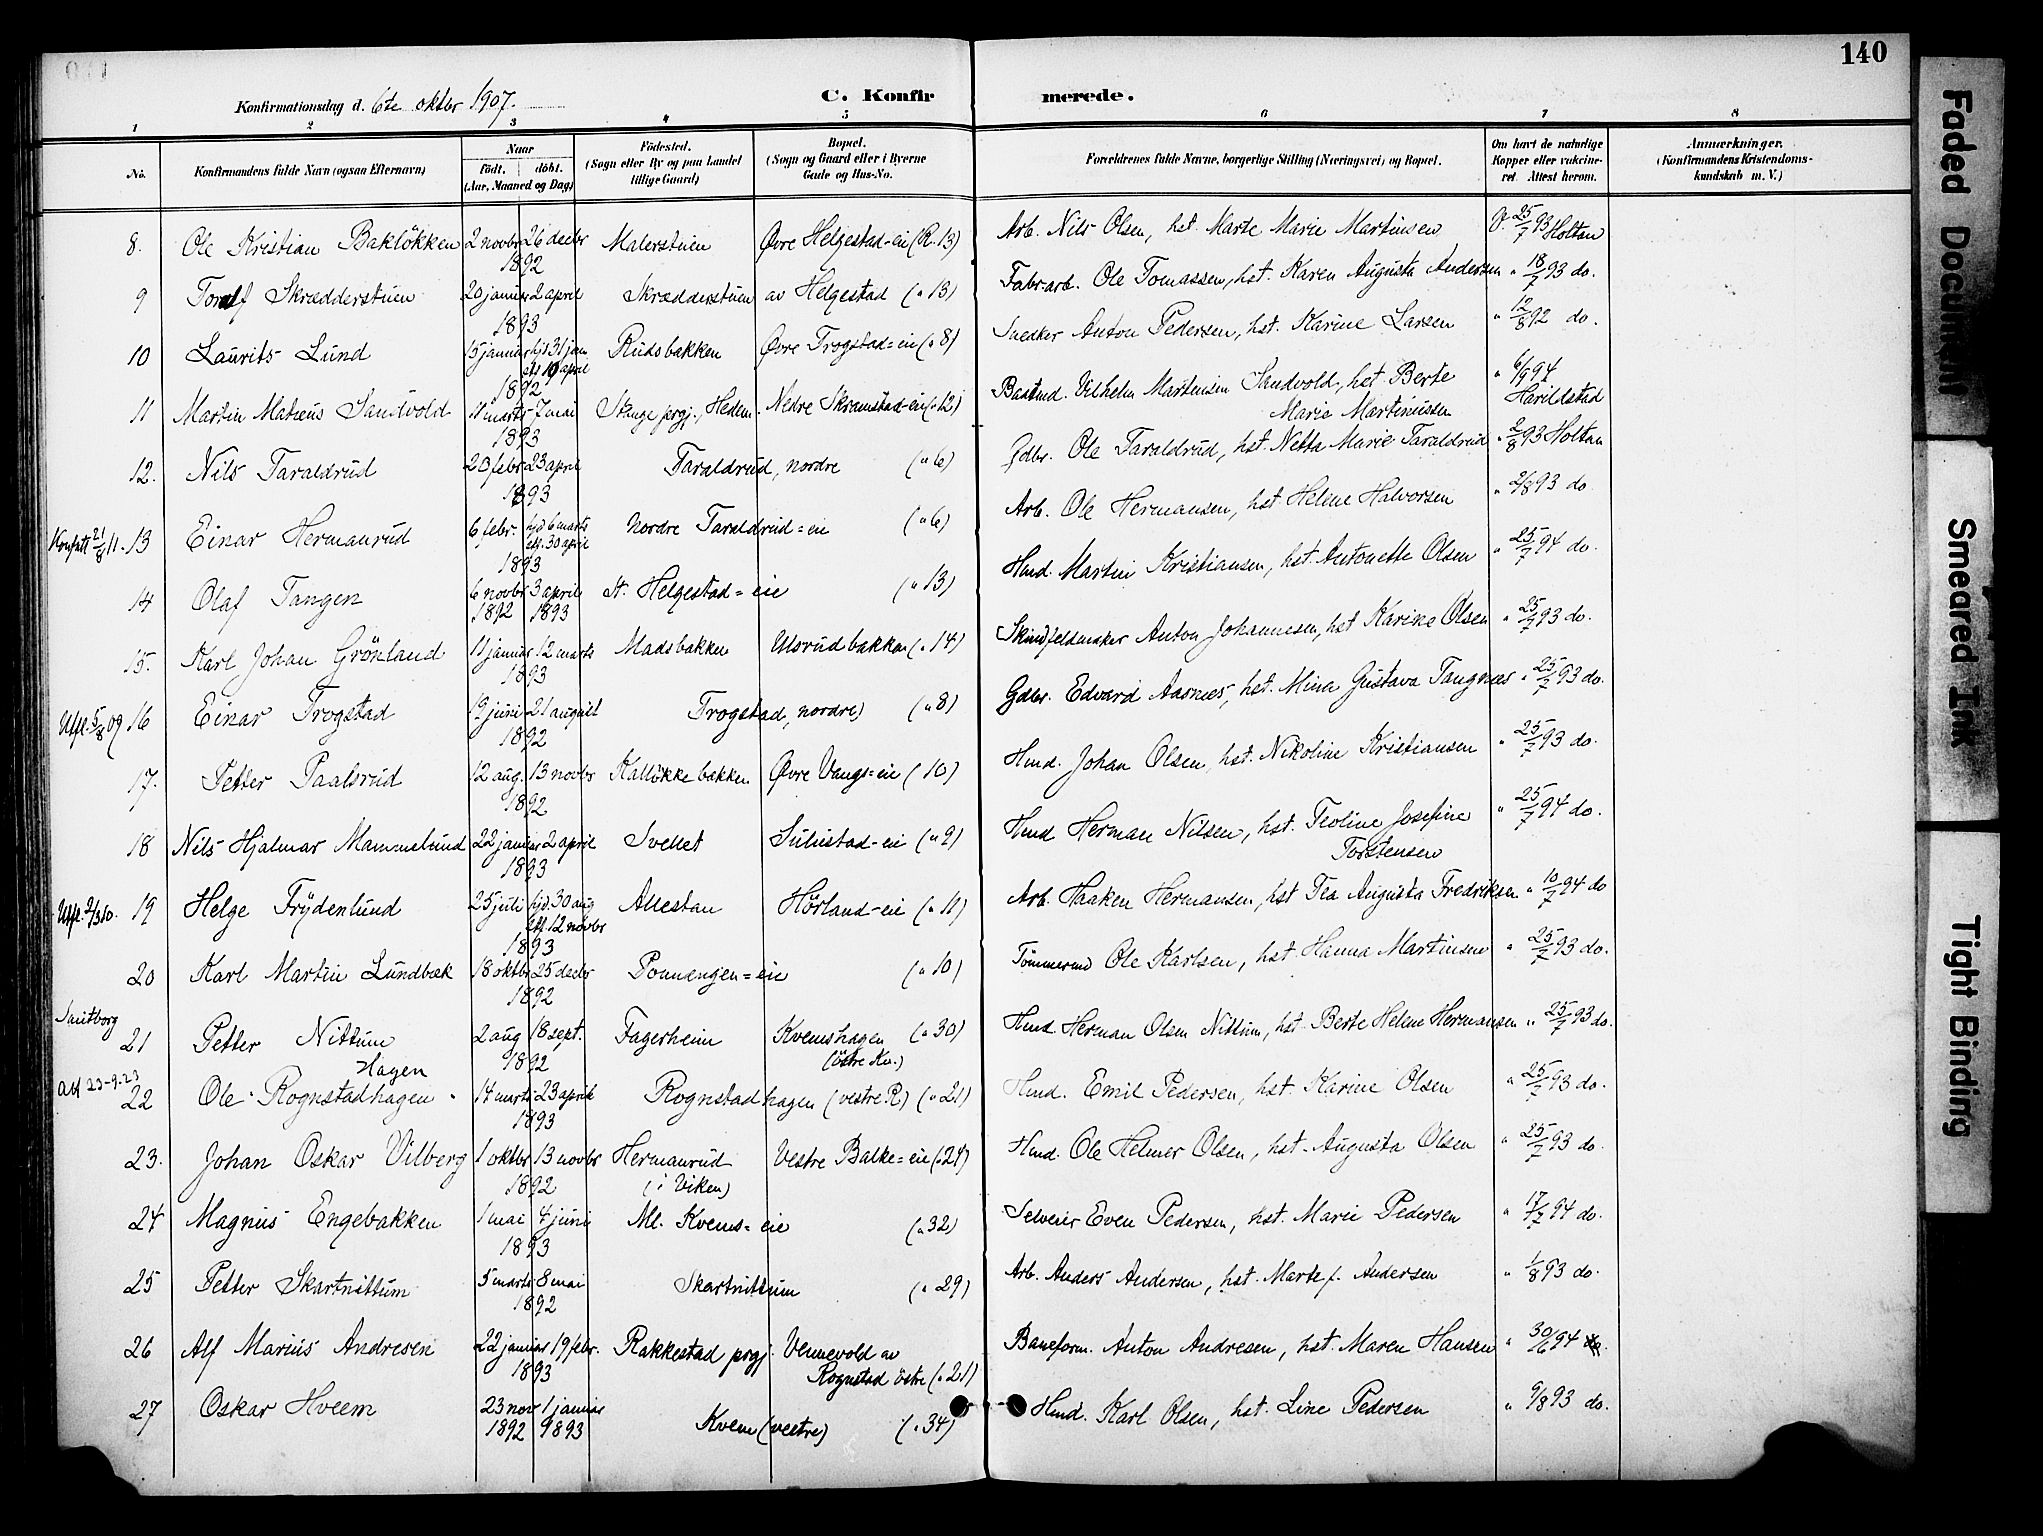 140
Konfirmationsdag d. 6te oktbr 1907.
C. Konfirmerede.
1 2 3 4 5 6 7 8
No. Konfirmandens fulde Navn (ogsaa Efternavn) Naar født. døbt. (Aar, Maaned og Dag) Fødested. (Sogn eller By og paa Landet tillige Gaard) Bopæl. (Sogn og Gaard eller i Byerne Gade og Hus-No. Forældrenes fulde Navne, borgerlige Stilling (Næringsvei) og Bopæl. Om havt de naturlige Kopper eller vaccineret. Attest herom. Anmærkninger. (Konfirmandens Kristendomskundskab m. V.)
8. Ole Kristian Bakløkken 2 novbr 26 decbr 1892 Malerstuen Øvre Helgestad-eie (R. 13) Arb. Nils Olsen, hst. Marte Marie Martinsen V. 25/7 93 Holtan
9 Toralf Skrædderstuen 20 januar 2 april 1893 Skrædderstuen av Helgestad (" 13) Fabr.arb. Ole Tomassen, hst. Karen Augusta Andersen " 18/7 93 do.
10 Laurits Lund 15 januar hjd 31 jan 10 april 1892 Rudsbakken Øvre Trogstad=eie (" 8) Snedker Anton Pedersen, hst. Karine Larsen " 12/8 92 do.
11 Martin Mateus Sandvold 11 marts 7 mai 1893 Stange prgj., Hedem. Nedre Skramstad-eie (" 12) Baatmd. Vilhelm Martinsen Sandvold, hst. Berte Marie Martinussen " 6/9 94 Harildstad
12. Nils Taraldrud 20 febr 23 april 1893 Taraldrud, nordre (" 6) Gdbr. Ole Taraldrud, hst. Netta Marie Taraldrud " 2/8 93 Holtan
13 Einar Hermanrud 6 febr. hjd 6 marts 30 april 1893 Nordre Taraldrud=eie (" 6) Arb. Ole Hermansen, hst Helene Halvorsen " 2/8 93 do
14 Olaf Tangen 6 novbr 1892 3 april 1893 N. Helgestad=eie (" 13) Hmd. Martin Kristiansen, hst. Antonette Olsen " 25/7 94 do.
15. Karl Johan Grønland 11 januar 12 marts 1893 Madsbakken Ulsrudbakken (" 14) (Skind)feldmaker Anton Johannesen, hst Karine Olsen " 25/7 93 do.
Utfl. 5/8 09 16 Einar Trogstad 19 juni 21 august 1892 Trogstad, nordre) (" 8) Gdbr. Edvard Aasnes, hst. Mina Gustava Tangnes " 25/7 93 do.
17. Petter Paalsrud 12 aug. 13 novbr 1892 Kalløkkebakken Øvre Vangs=eie ( 10) Hmd. Johan Olsen, hst. Nikoline Kristiansen " 25/7 93 do.
18 Nils Hjalmar Mammelund 22 januar 2 april 1893 Svellet Sulustad-eie (" 9) Hmd Herman Nilsen, hst. Teoline Josefine Torstensen " 25/7 94 do.
Utfl. 2/3 10. 19 Helge Frydenlund 25 juli hjd. 30 aug 12 novbr 1893 Allestan Hørland-eie (" 11) Arb. Haaken Hermansen, hst Tea Augusta Fredriksen " 10/7 94 do
20 Karl Martin Lundbæk 18 oktbr 25 decbr 1892 Ponnengen=eie (" 10) Tømmermd Ole Karlsen, hst Hanna Martinsen " 25/7 93 do.
21 Petter Nittum 2 aug 18 sept. 1892 Fagerheim Kvemshagen (østre Kv.) (" 30) Hmd. Herman Olsen Nittum, hst. Berte Helene Hermansen " 25/7 93 do.
Att 23-9-23 22 Ole Rognstadhagen Hagen 14 marts 23 april 1893 Rognstadhagen (vestre R) (" 21) Hmd. Emil Pedersen, hst. Karine Olsen " 25/7 93 do.
23. Johan Oskar Vilberg 1 oktbr 13 novbr 1892 Hermanrud (i Viken) Vestre Balke=eie (" 24) Hmd. Ole Helmer Olsen, hst. Augusta Olsen " 25/7 93 do.
24 Magnus Engebakken 1 mai 4 juni 1893 Ml. Kvems=eie (" 32) Selveier Even Pedersen, hst. Marie Pedersen " 17/7 94 do.
25 Petter Skartnittum 5 marts 8 mai 1892 Skartnittum (" 29) Arb. Anders Andersen, hst. Marte f. Andersen " 1/8 93 do.
26 Alf Marius Andresen 22 januar 19 febr. 1893 Rakkestad prgj. Vennevold av Rognstad østre (" 21) Baneform. Anton Andresen, hst. Maren Hansen " 30/6 94 do.
27 Oskar Hveem 23 nov 1892 1 januar 1893 Kvem (vestre) (" 34) Hmd. Karl Olsen, hst. Line Pedersen " 9/8 93 do.
Faded Document
Smeared Ink
Tight Binding